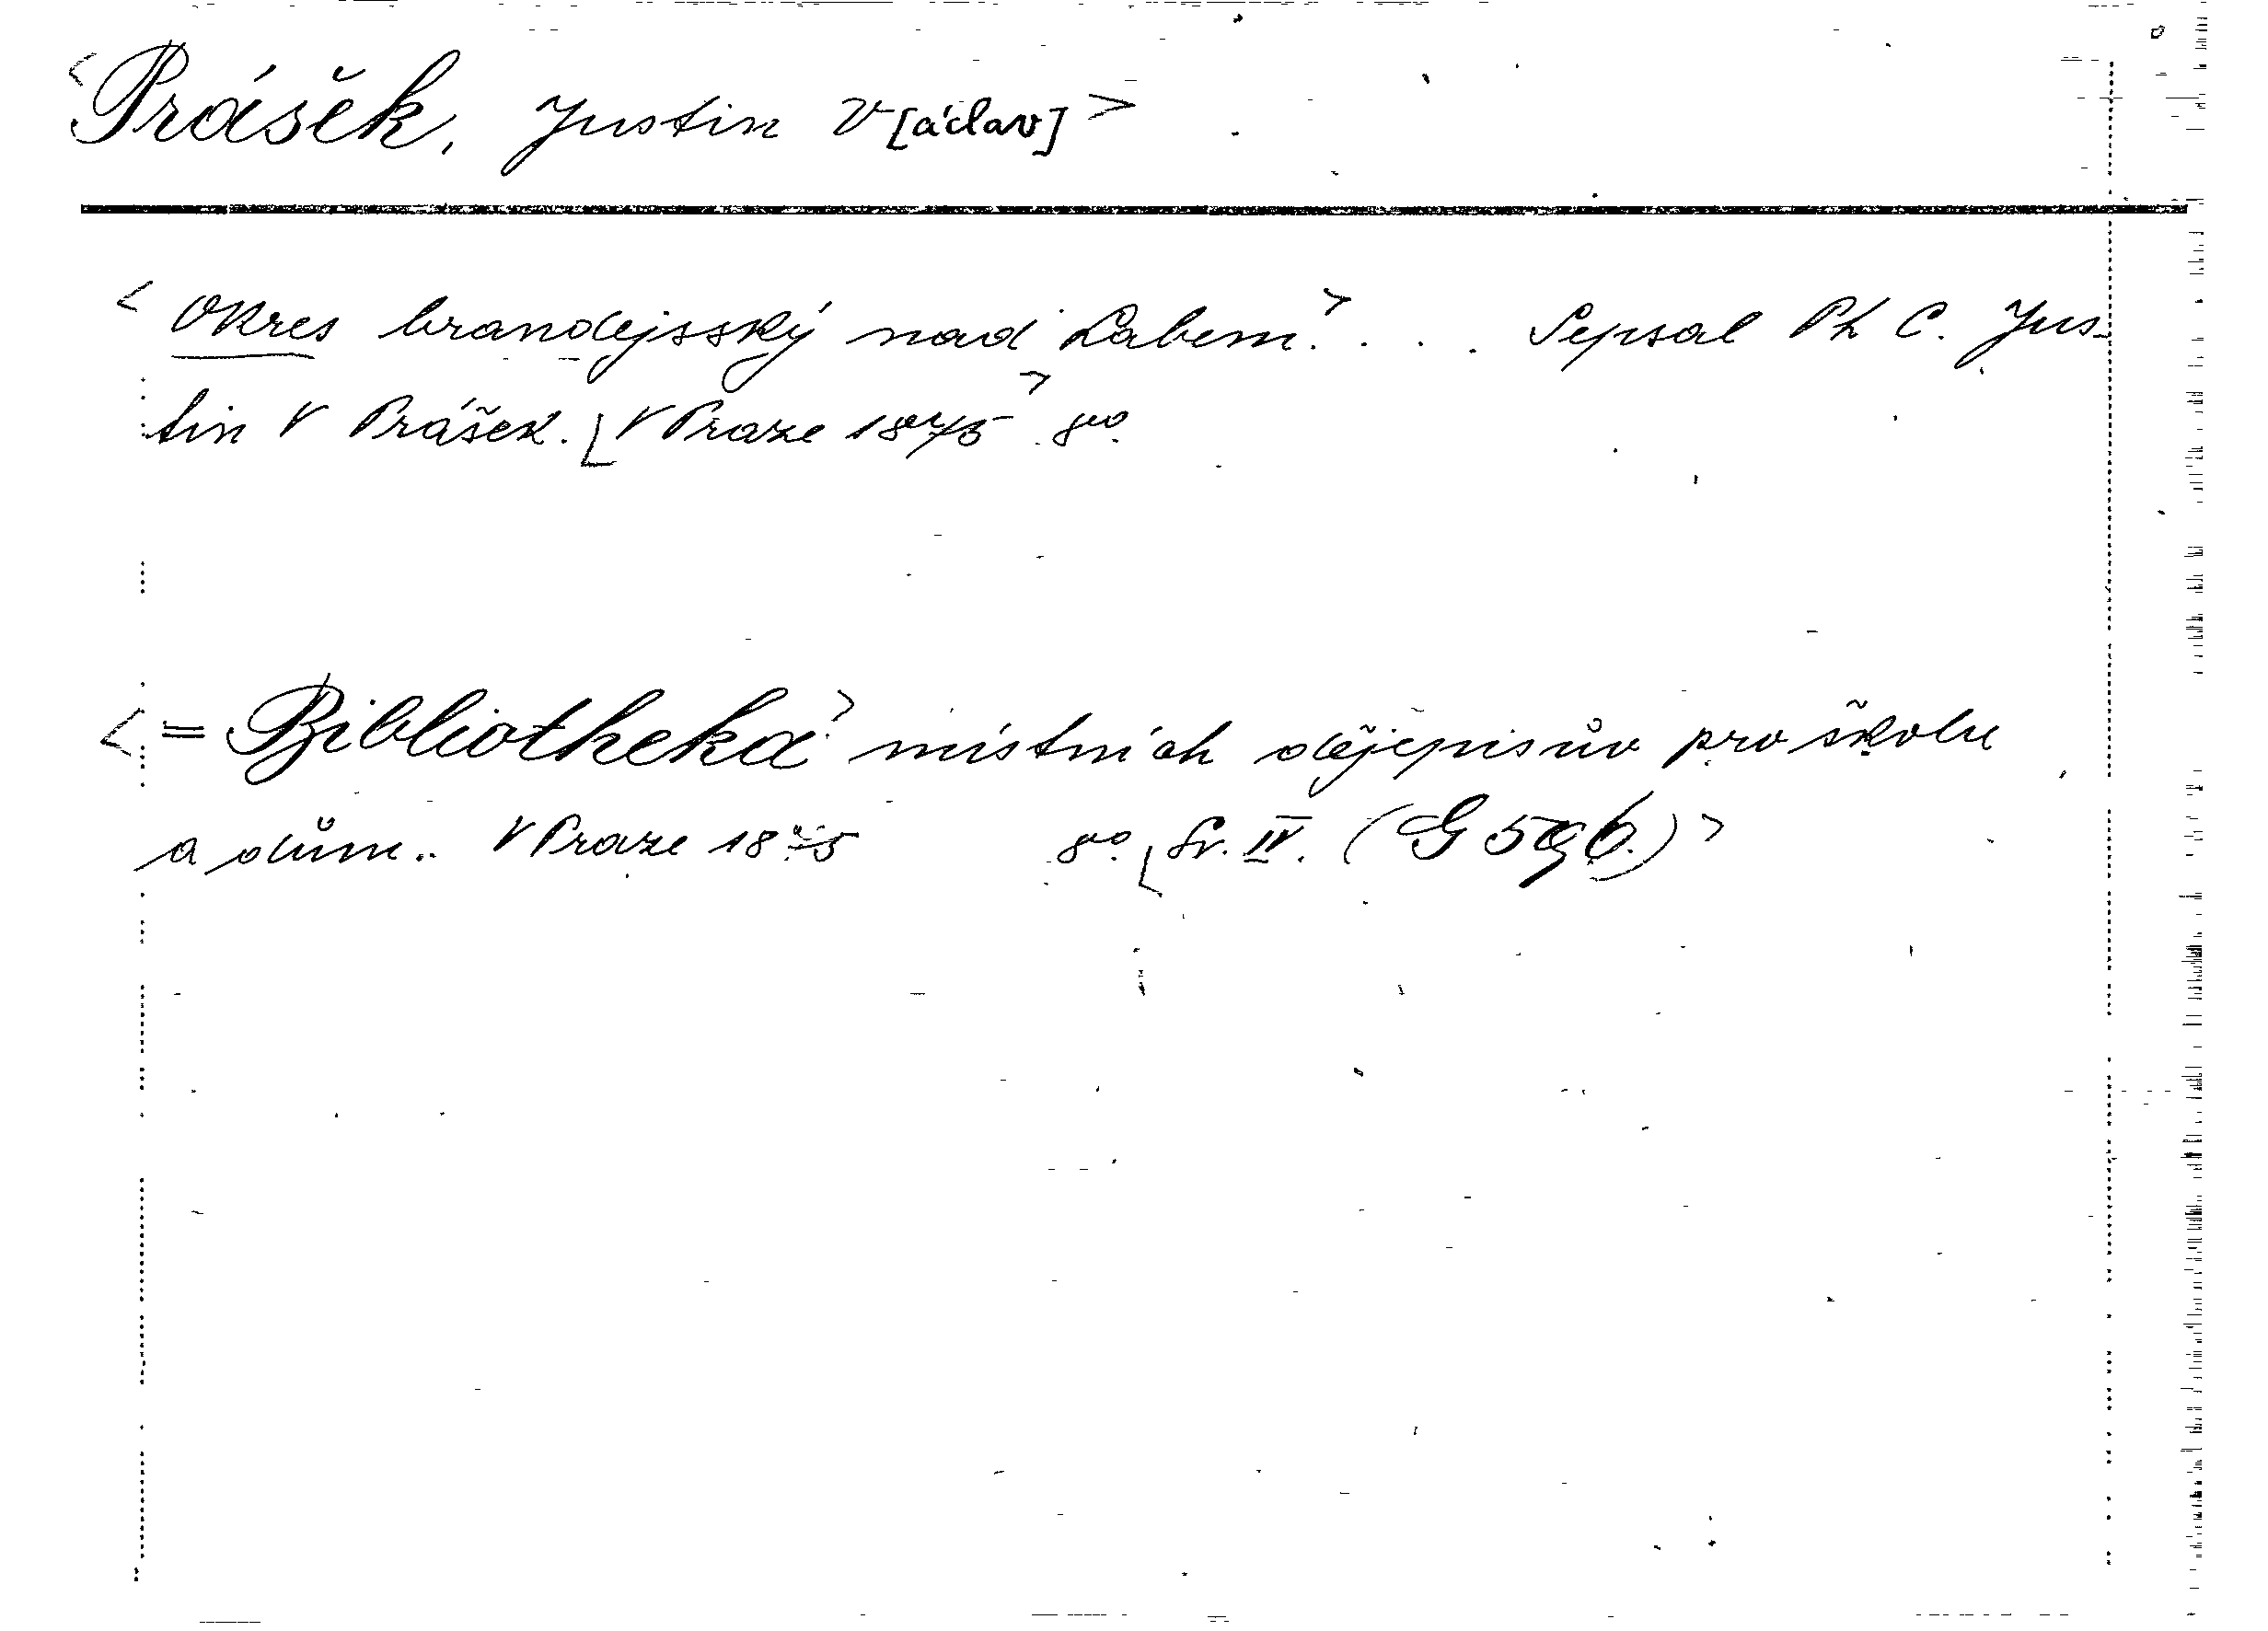 <Prášek, Justin V[áclav]>
<Okres brandejsský nad Labem.> . . . Sepsal Ph C. Jus-
tin V Prášek. [V Praze 1875> 8vo.
<= Bibliotheka> místních dějepisův pro školu
a dům.. V Praze 1875 8vo. [Sv. IV. (G 596.)>